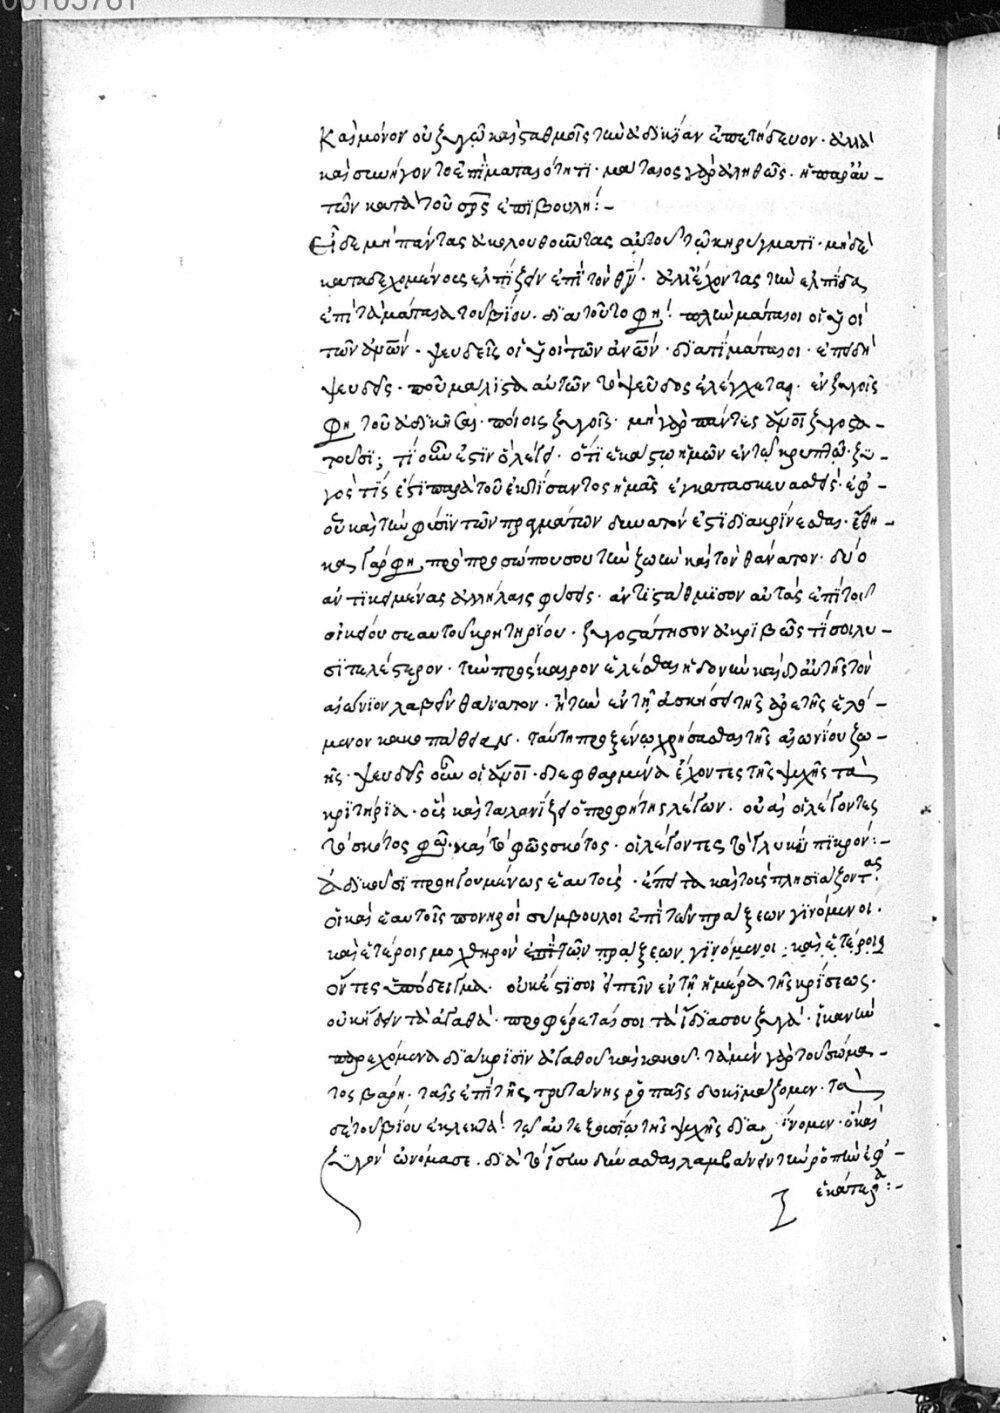 00105761
καὶ μόνον οὐ ζυγῷ καὶ σταθμοῖς τὴν ἀδικίαν ἐπετήδευον· ἀλλὰ
καὶ συνήγοντο ἐπὶ ματαιότητι· μάταιος γὰρ ἀληθῶς· ἡ παρ' αὐ-
τῶν κατὰ τοῦ σρς ἐπιβουλή:-
Εἶδε μὴ πάντας ἀκολουθοῦντας αὐτοῦ τῷ κηρύγματι· μηδὲ
καταδεχομένους ἐλπίζειν ἐπὶ τὸν θν· ἀλλ' ἔχοντας τὴν ἐλπίδα
ἐπὶ τὰ μάταια τοῦ βίου. διὰ τοῦτο φη! πλὴν μάταιοι οἱ υἱοὶ
τῶν ἀνων· ψευδεῖς οἱ υἱοὶ τῶν ἀνων· διατί μάταιοι· ἐπειδὴ
ψευδεῖς· ποῦ μάλιστα αὐτῶν τὸ ψεῦδος ἐλέγχεται· ἐν ζυγοῖς
φη τοῦ ἀδικῆσαι· ποίοις ζυγοῖς· μὴ γὰρ πάντες ἀνοι ζυγοστα-
τοῦσι; τί οὖν ἐστὶν ὃ λέγει· ὅτι ἑκάστῳ ἡμῶν ἐν τῷ κρυπτῷ· ζυ-
γός τίς ἐστι παρὰ τοῦ κτίσαντος ἡμᾶς ἐγκατασκευασθείς· ἐφ'-
οὗ καὶ τὴν φύσιν τῶν πραγμάτων δυνατόν ἐστι διακρίνεσθαι· ἔθη-
κα γάρ φη πρὸ προσώπου σου τὴν ζωὴν καὶ τὸν θάνατον· δύο
ἀντικειμένας ἀλλήλαις φύσεις· ἀντιστάθμισον αὐτὰς ἐπὶ τοῦ
οἰκείου σεαυτοῦ κριτηρίου· ζυγοστάτησον ἀκριβῶς τί σοι λυ-
σιτελέστερον· τὴν πρόσκαιρον ἑλέσθαι ἡδονὴν καὶ δι' αὐτῆς τὸν
αἰώνιον λαβεῖν θάνατον· ἢ τὴν ἐν τῇ ἀσκήσει τῆς ἀρετῆς ἑλό-
μενον κακοπάθειαν· ταύτῃ προξένῳ χρήσασθαι τῆς αἰωνίου ζω-
ῆς· ψευδεῖς οὖν οἱ ἀνοι· διεφθαρμένα ἔχοντες τῆς ψυχῆς τὰ
κριτήρια· οὓς καὶ ταλανίζει ὁ προφήτης λέγων. οὐαὶ οἱ λέγοντες
τὸ σκότος φῶς· καὶ τὸ φῶς σκότος· οἱ λέγοντες τὸ γλυκὺ πικρόν:-
ἀδικοῦσι προηγουμένως ἑαυτούς· ἔπειτα καὶ τοὺς πλησιάζοντας·
οἳ καὶ ἑαυτοῖς πονηροὶ σύμβουλοι ἐπὶ τῶν πράξεων γινόμενοι.
καὶ ἑτέροις μοχθηρὸν ἐπὶ τῶν πράξεων γινόμενοι· καὶ ἑτέροις
ὄντες ὑπόδειγμα· οὐκ ἔστι σοι εἰπεῖν ἐν τῇ ἡμέρᾳ τῆς κρίσεως·
οὐκ ᾔδειν τὰ ἀγαθά· προφέρεταί σοι τὰ ἴδιά σου ζυγά· ἱκανὴν
παρεχόμενα διάκρισιν ἀγαθοῦ καὶ κακοῦ· τὰ μὲν γὰρ τοῦ σώμα-
τος βάρη· ταῖς ἐπὶ τῆς τρυτάνης ῥοπαῖς δοκιμάζομεν· τὰ
δὲ τοῦ βίου ἐκλεκτὰ! τῷ αὐτεξουσίῳ τῆς ψυχῆς διακρίνομεν· ὃ καὶ
ζυγὸν ὠνόμασε. διὰ τὸ ἴσην δύνασθαι λαμβάνειν τὴν ῥοπὴν ἐφ'-
ἑκάτερα:-